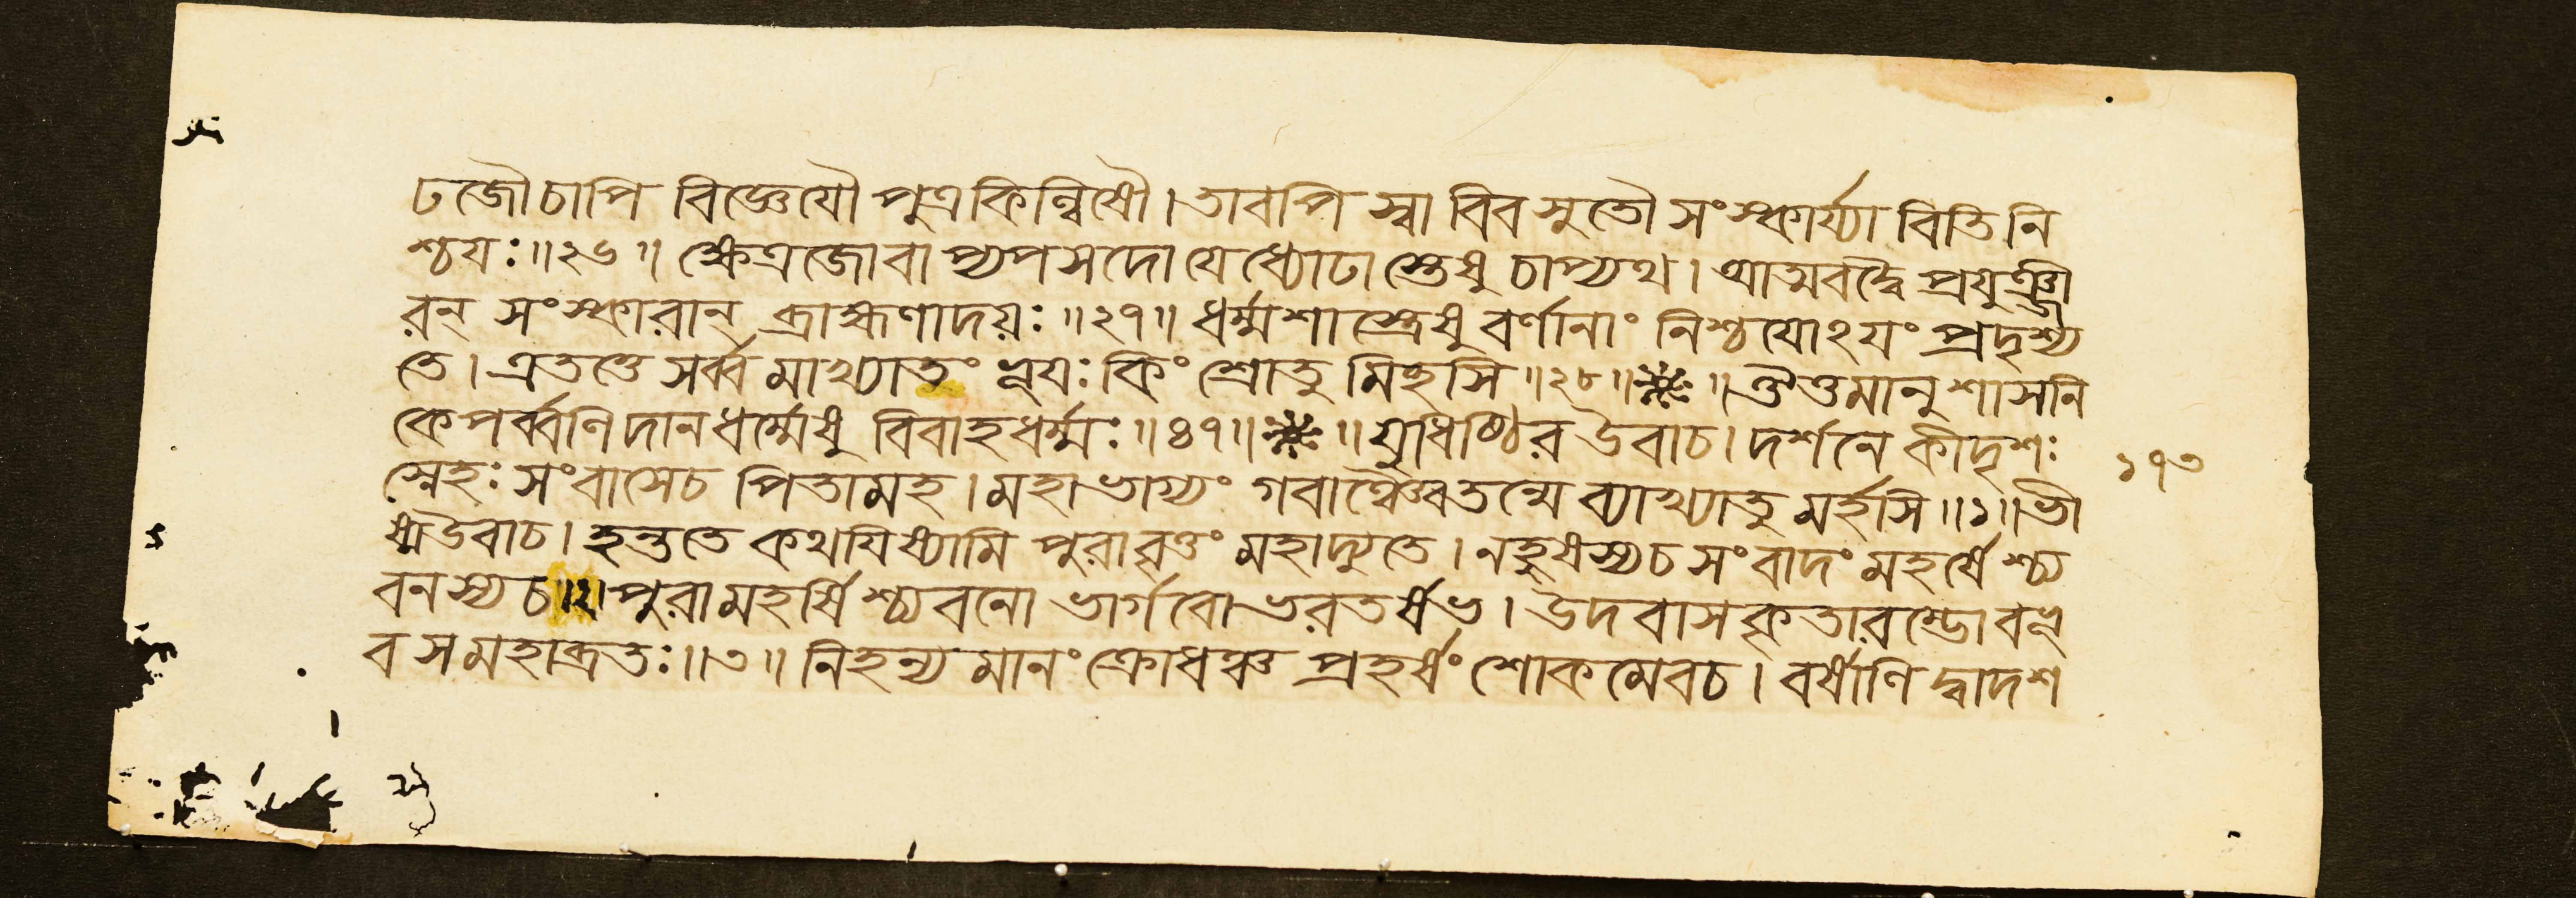 ঢজৌচাপি বিজ্ঞেযৌ পুত্রকিল্বিষৌ। তাবপি স্বা বিব সুতৌ সংস্কার্য্যা বিতি নি
শ্চয়ঃ॥২৬॥ ক্ষেত্রজোবা প্যপসদো যেধ্যোঢা স্তেষু চাপ্যথ। আত্মবদ্বৈ প্রযুঞ্জী
রন্ সংস্কারান্ ব্রাহ্মণাদয়ঃ॥২৭॥ ধর্ম্মশাস্ত্রেষু বর্ণানাং নিশ্চযোঽযং প্রদৃশ্য
তে। এতত্তে সর্ব্ব মাখ্যাতং ভূযঃ কিং শ্রোতু মিহসি॥২৮॥ ॥ ঔত্তমানুশাসনি
কেপর্ব্বণি দানধর্ম্মেষু বিবাহধর্ম্মঃ॥৪৭॥ ॥ যুধিষ্ঠির উবাচ। দর্শনে কীদৃশঃ
স্নেহঃ সংবাসেচ পিতামহ। মহাভাগ্যং গবাঞ্চৈব তন্মে ব্যাখ্যাতু মর্হসি॥১॥ ভী
ষ্মউবাচ। হন্ততে কথযিষ্যামি পুরাবৃত্তং মহাদ্যুতে। নহুষস্যচ সংবাদং মহর্ষে শ্চ্য
বনস্যচ॥২॥ পুরামহর্ষি শ্চ্যবনো ভার্গবো ভরতর্ষভ। উদবাসকৃতারম্ভো বভূ
ব সমহাব্রতঃ॥৩॥ নিহন্য মানং ক্রোধঞ্চ প্রহর্ষং শোকমেবচ। বর্ষাণি দ্বাদশ
১৭৩